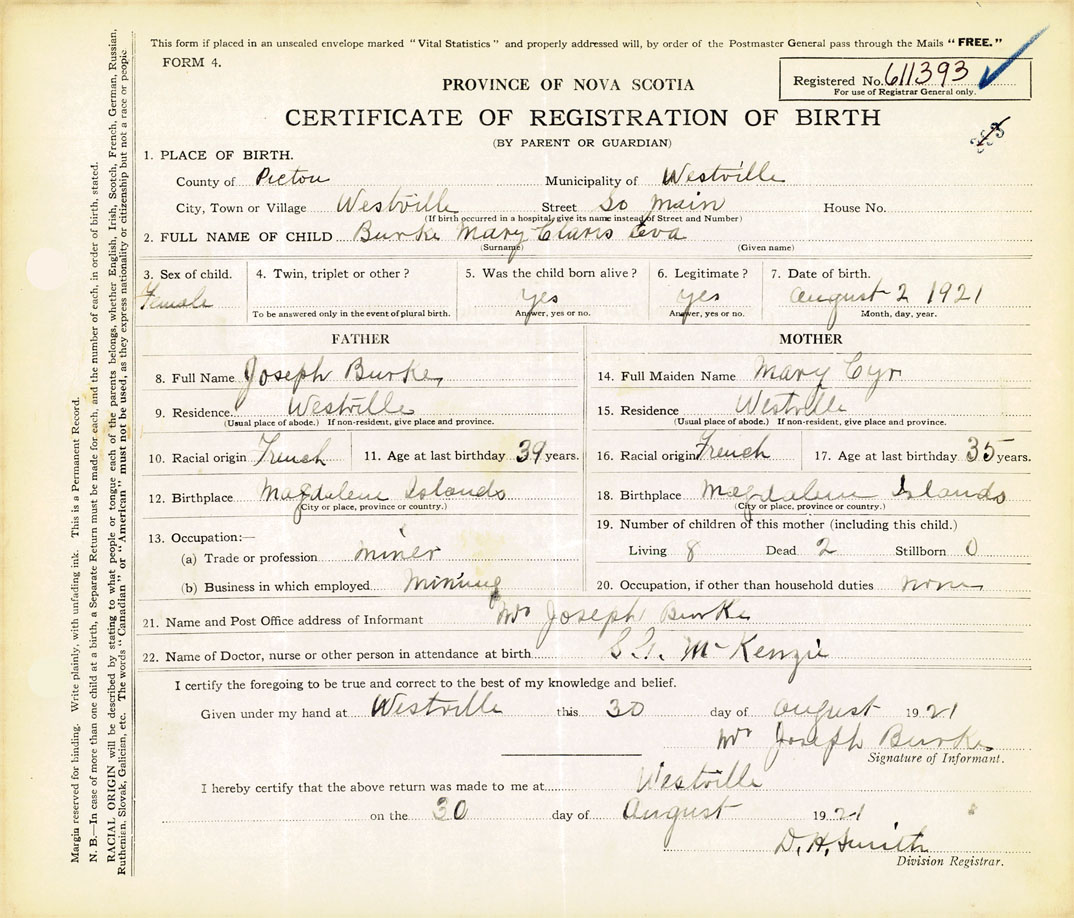 This form if placed in an unsealed envelope marked "Vital Statistics" and properly addressed will, by order of the Postmaster General pass through the Mails "FREE."
FORM 4.
Registered No. 611393
For use of Registrar General only.
PROVINCE OF NOVA SCOTIA
CERTIFICATE OF REGISTRATION OF BIRTH
(BY PARENT OR GUARDIAN)
1. PLACE OF BIRTH.
County of Pictou Municipality of Westville
City, Town or Village Westville Street So Main House No.
(If birth occurred in a hospital, give its name instead of Street and Number)
2. FULL NAME OF CHILD Burke Mary Claris Eva
(Surname) (Given name)
3. Sex of child. 4. Twin, triplet or other? 5. Was the child born alive? 6. Legitimate? 7. Date of birth.
Female yes yes August 2 1921
To be answered only in the event of plural birth. Answer, yes or no. Answer, yes or no. Month, day, year.
FATHER MOTHER
8. Full Name Joseph Burke 14. Full Maiden Name Mary Cyr
9. Residence Westville 15. Residence Westville
(Usual place of abode.) If non-resident, give place and province. (Usual place of abode.) If non-resident, give place and province.
10. Racial origin French 11. Age at last birthday 39 years. 16. Racial origin French 17. Age at last birthday 35 years.
12. Birthplace Magdalen Islands 18. Birthplace Magdalen Islands
(City or place, province or country.) (City or place, province or country.)
13. Occupation:— 19. Number of children of this mother (including this child.)
(a) Trade or profession miner Living 8 Dead 2 Stillborn 0
(b) Business in which employed Mining 20. Occupation, if other than household duties none
21. Name and Post Office address of Informant Mrs Joseph Burke
22. Name of Doctor, nurse or other person in attendance at birth McKenzie
I certify the foregoing to be true and correct to the best of my knowledge and belief.
Given under my hand at Westville this 30 day of August 1921
Mrs Joseph Burke
Signature of Informant.
I hereby certify that the above return was made to me at Westville
on the 30 day of August 1921
D. H. Smith
Division Registrar.
Margin reserved for binding. Write plainly, with unfading ink. This is a Permanent Record.
N. B.—In case of more than one child at a birth, a Separate Return must be made for each, and the number of each, in order of birth, stated.
RACIAL ORIGIN will be described by stating to what people or tongue each of the parents belongs, whether English, Irish, Scotch, French, German, Russian,
Ruthenian, Slovak, Galician, etc. The words "Canadian" or "American" must not be used, as they express nationality or citizenship but not a race or people